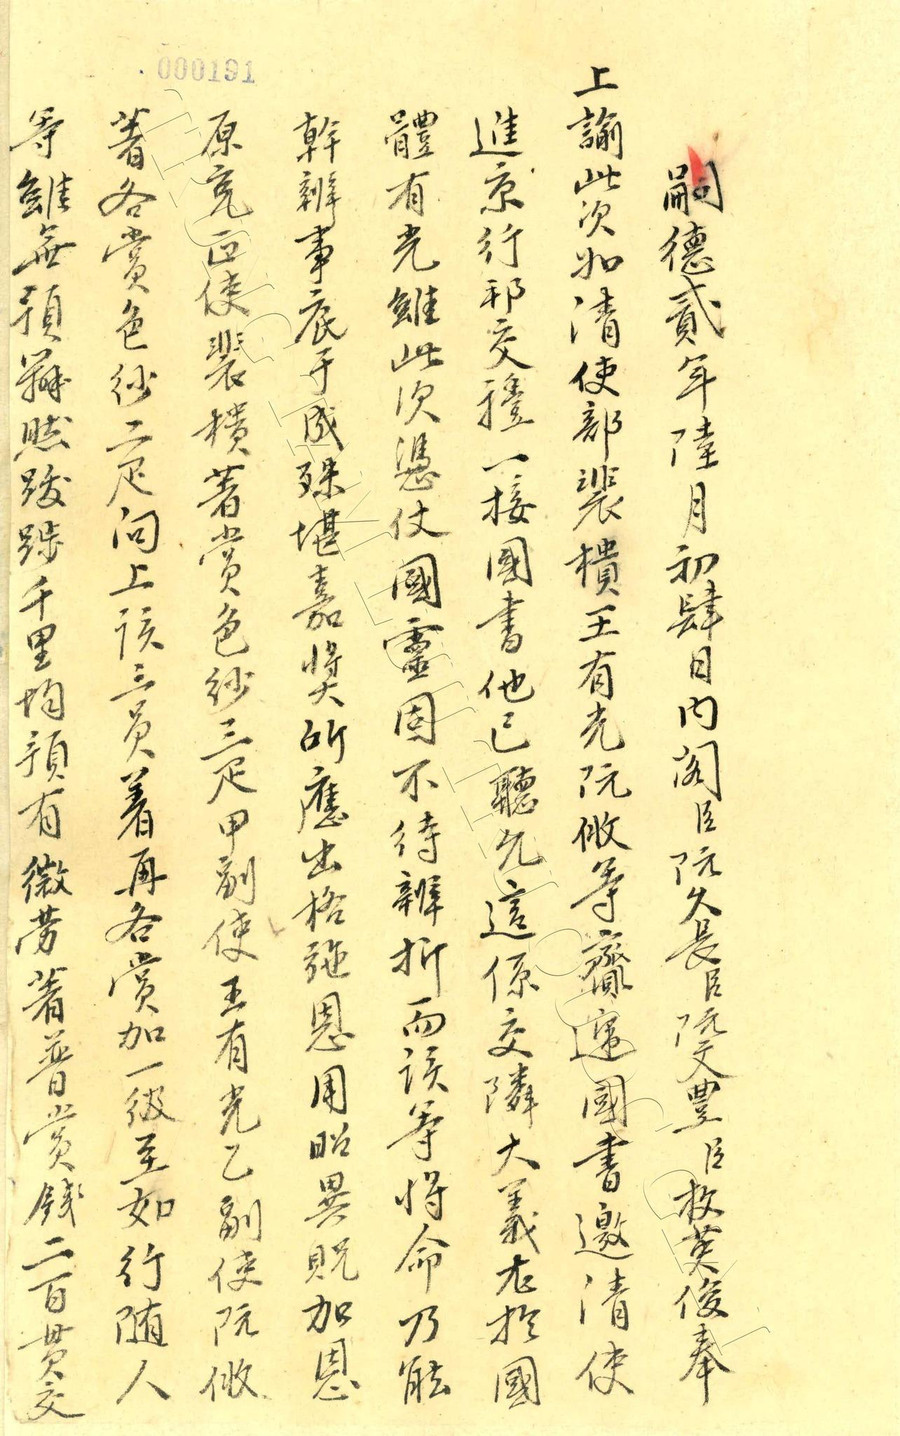 000191
嗣德貳年陸月初肆日內閣臣阮久長臣阮文豐臣枚英俊奉
上諭此次如清使部裴樻王有光阮倣等齎遞國書邀清使
進京行邦交禮一接國書他已聽允這係交隣大義尤於國
體有光雖此次憑仗國靈固不待辨折而該等將命乃能
幹辦事底于成殊堪嘉奬所應出格施恩用昭異貺加恩
原充正使裴樻著賞色紗三疋甲副使王有光乙副使阮倣
著各賞色紗二疋問上該三員着再各賞加一級至如行隨人
等雖無預辦然跋踄千里均預有微劳著普賞錢二百貫交